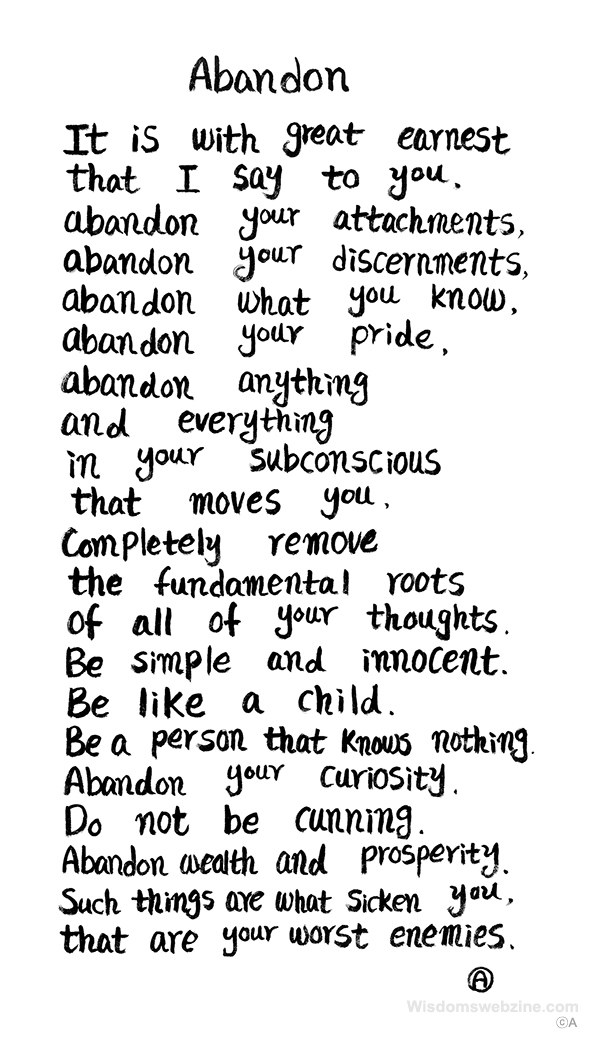 Abandon
It is with great earnest
that I say to you.
abandon your attachments,
abandon your discernments,
abandon what you know,
abandon your pride,
abandon anything
and everything
in your subconscious
that moves you.
Completely remove
the fundamental roots
of all of your thoughts.
Be simple and innocent.
Be like a child.
Be a person that knows nothing.
Abandon your curiosity.
Do not be cunning.
Abandon wealth and prosperity.
Such things are what sicken you,
that are your worst enemies.
Ⓐ
Wisdomswebzine.com
©A